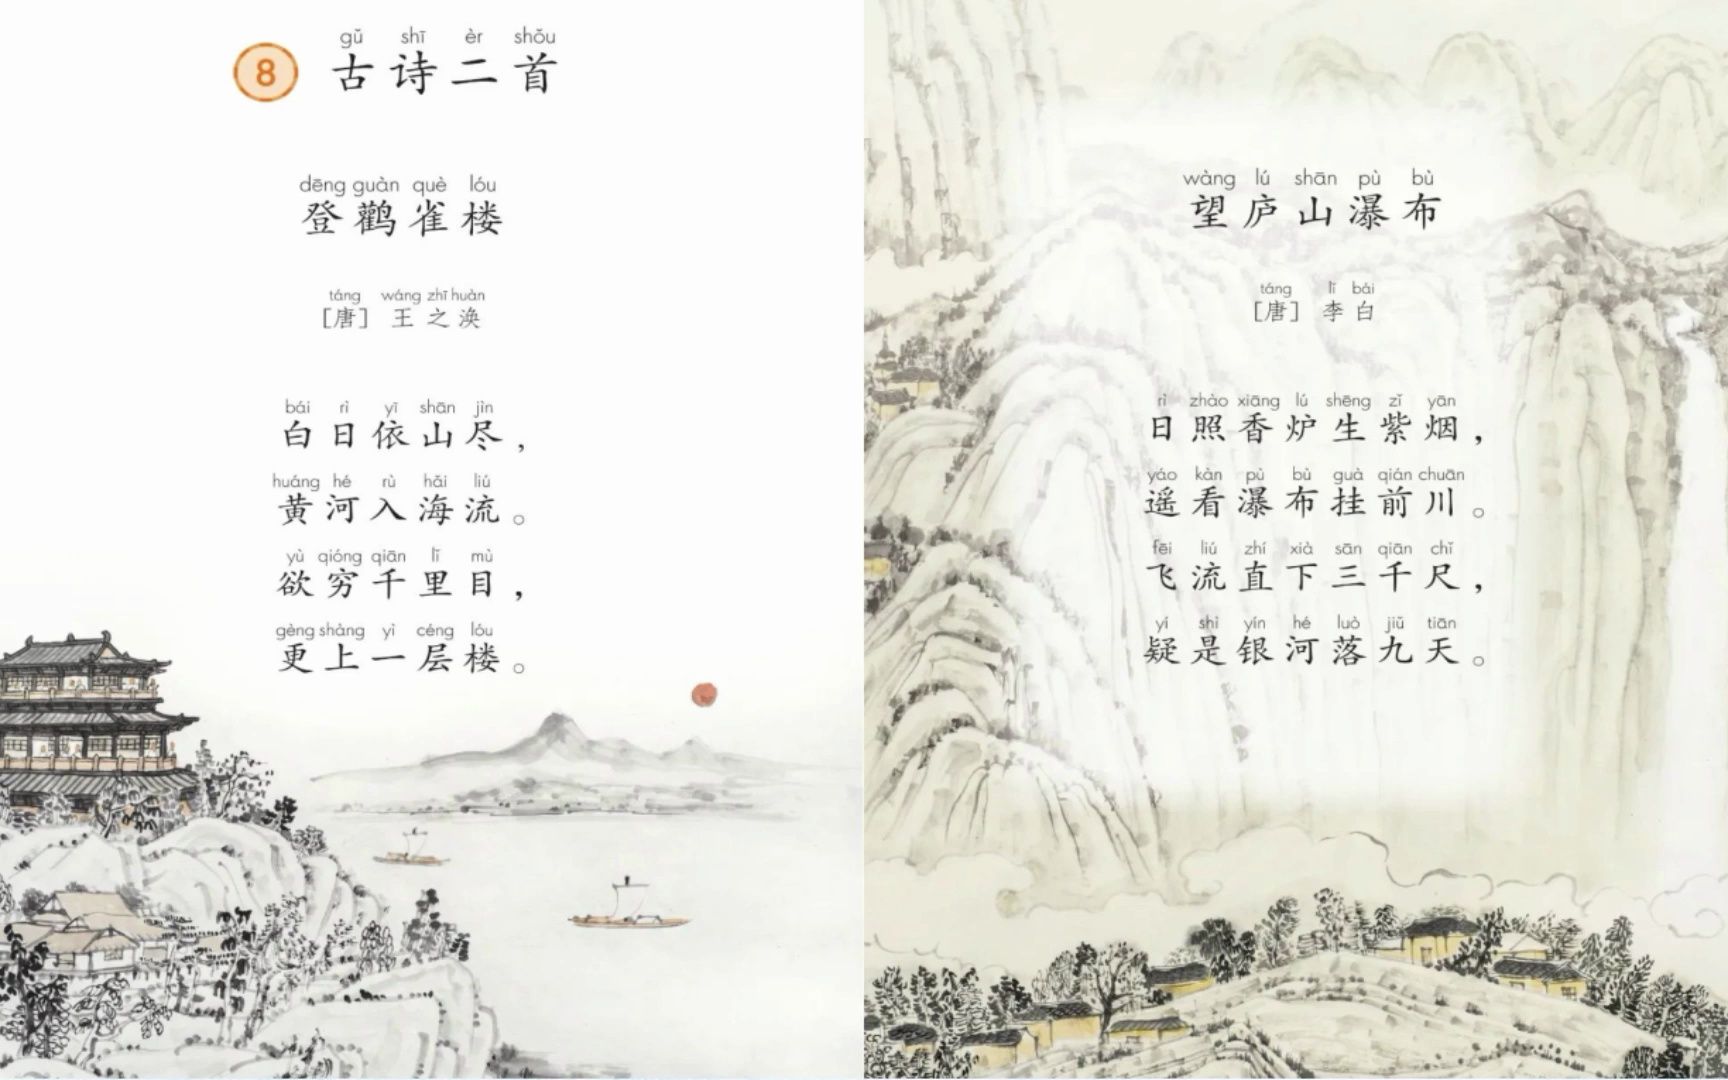 gǔ shī èr shǒu
8 古诗二首
dēng guàn què lóu
登鹳雀楼
táng wáng zhī huàn
［唐］ 王之涣
bái rì yī shān jìn
白日依山尽，
huáng hé rù hǎi liú
黄河入海流。
yù qióng qiān lǐ mù
欲穷千里目，
gèng shàng yì céng lóu
更上一层楼。
wàng lú shān pù bù
望庐山瀑布
táng lǐ bái
［唐］ 李白
rì zhào xiāng lú shēng zǐ yān
日照香炉生紫烟，
yáo kàn pù bù guà qián chuān
遥看瀑布挂前川。
fēi liú zhí xià sān qiān chǐ
飞流直下三千尺，
yí shì yín hé luò jiǔ tiān
疑是银河落九天。